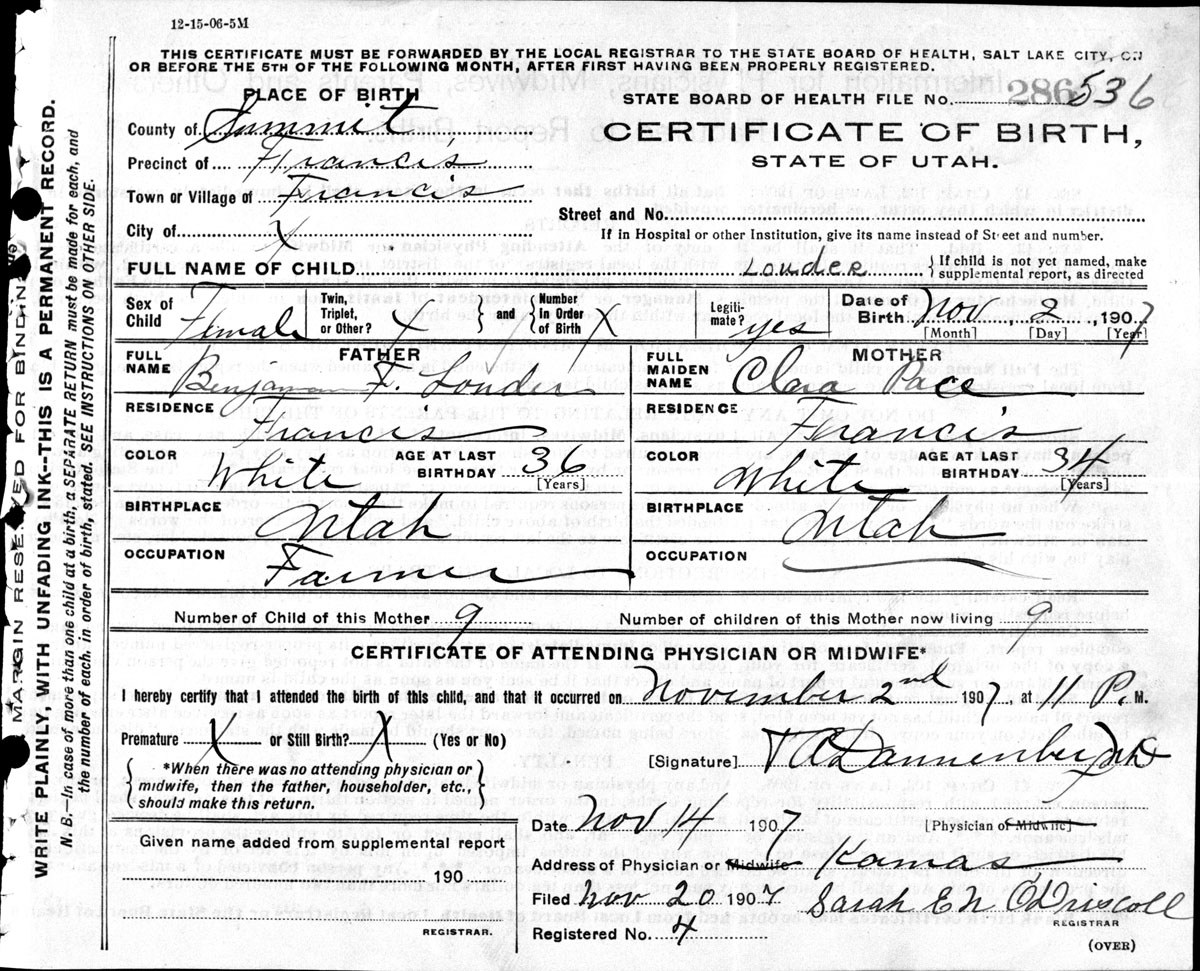 12-15-06-5M
THIS CERTIFICATE MUST BE FORWARDED BY THE LOCAL REGISTRAR TO THE STATE BOARD OF HEALTH, SALT LAKE CITY, ON
OR BEFORE THE 5TH OF THE FOLLOWING MONTH, AFTER FIRST HAVING BEEN PROPERLY REGISTERED.
PLACE OF BIRTH
STATE BOARD OF HEALTH FILE No. 286 536
County of Summit
CERTIFICATE OF BIRTH,
STATE OF UTAH.
Precinct of Francis
Town or Village of Francis
Street and No.
City of X
If in Hospital or other Institution, give its name instead of Street and number.
FULL NAME OF CHILD Louder { If child is not yet named, make supplemental report, as directed
Sex of Child Female Twin, Triplet, or Other? X } and { Number in Order of Birth X Legiti-mate? yes Date of Birth Nov 2, 1907
[Month] [Day] [Year]
FATHER
MOTHER
FULL NAME Benjamin F. Louder
FULL MAIDEN NAME Clara Pace
RESIDENCE Francis
RESIDENCE Francis
COLOR White AGE AT LAST BIRTHDAY 36 [Years]
COLOR White AGE AT LAST BIRTHDAY 34 [Years]
BIRTHPLACE Utah
BIRTHPLACE Utah
OCCUPATION Farmer
OCCUPATION
Number of Child of this Mother 9 Number of children of this Mother now living 9
CERTIFICATE OF ATTENDING PHYSICIAN OR MIDWIFE*
I hereby certify that I attended the birth of this child, and that it occurred on November 2nd 1907, at 11 P. M.
Premature X or Still Birth? X (Yes or No)
[Signature] Dannenberg
{ *When there was no attending physician or midwife, then the father, householder, etc., should make this return. }
Date Nov 14 1907 [Physician or Midwife]
Given name added from supplemental report
190
REGISTRAR.
Address of Physician or Midwife Kamas
Filed Nov 20 1907 Sarah E N O'Driscoll
REGISTRAR
Registered No. 4
(OVER)
MARGIN RESERVED FOR BINDING
WRITE PLAINLY, WITH UNFADING INK--THIS IS A PERMANENT RECORD.
N. B.--In case of more than one child at a birth, a SEPARATE RETURN must be made for each, and
the number of each, in order of birth, stated. SEE INSTRUCTIONS ON OTHER SIDE.